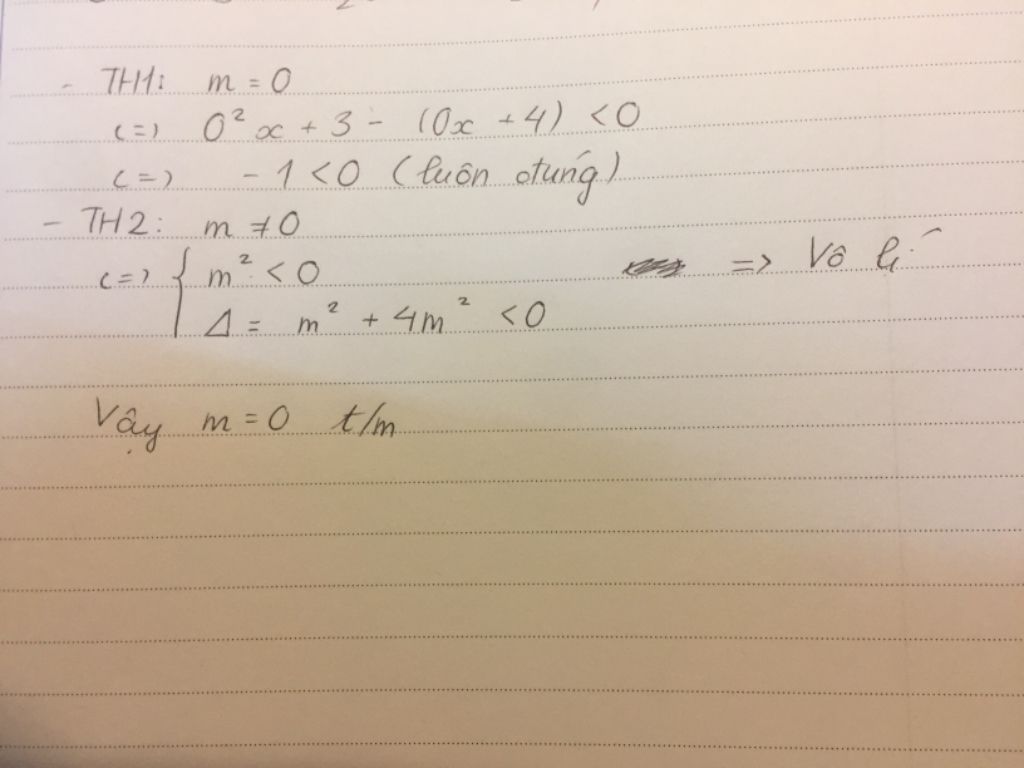 - TH1: m = 0
(=) 0² x + 3 - (0x + 4) < 0
(=) - 1 < 0 (luôn đúng)
- TH2: m ≠ 0
(=) { m² < 0 => Vô lí
Δ = m² + 4m² < 0
Vậy m = 0 t/m